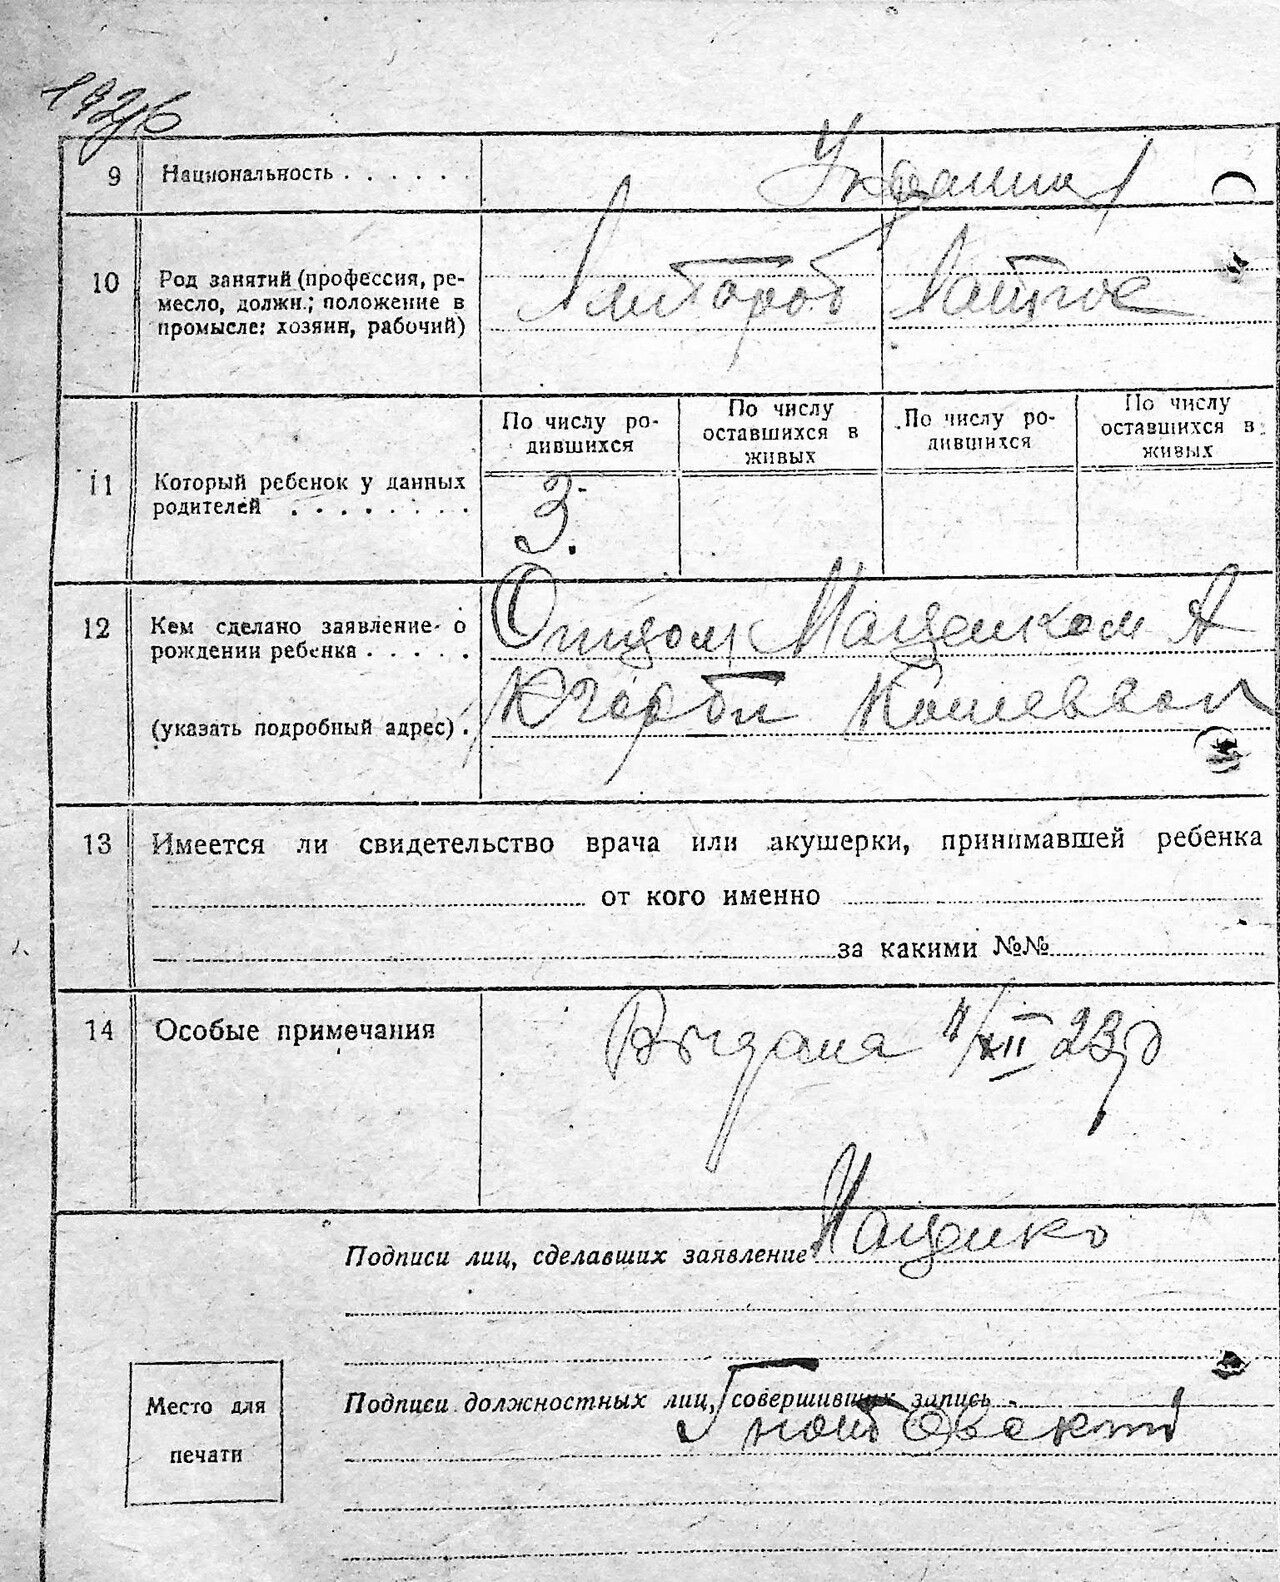 1926
9 Национальность . . . . . .
Украинц
10 Род занятий (профессия, ре-
месло, должн.; положение в
промысле: хозяин, рабочий)
11 Который ребенок у данных
родителей . . . . . . . .
По числу ро-
дившихся
По числу
оставшихся в
живых
По числу ро-
дившихся
По числу
оставшихся в
живых
3.
12 Кем сделано заявление о
рождении ребенка . . . . .
(указать подробный адрес) .
Отцом Маценком А
13 Имеется ли свидетельство врача или акушерки, принимавшей ребенка
от кого именно
за какими №№
14 Особые примечания
Выдана 11/XII 23
Подписи лиц, сделавших заявление Маценко
Подписи должностных лиц, совершивших запись
Место для
печати